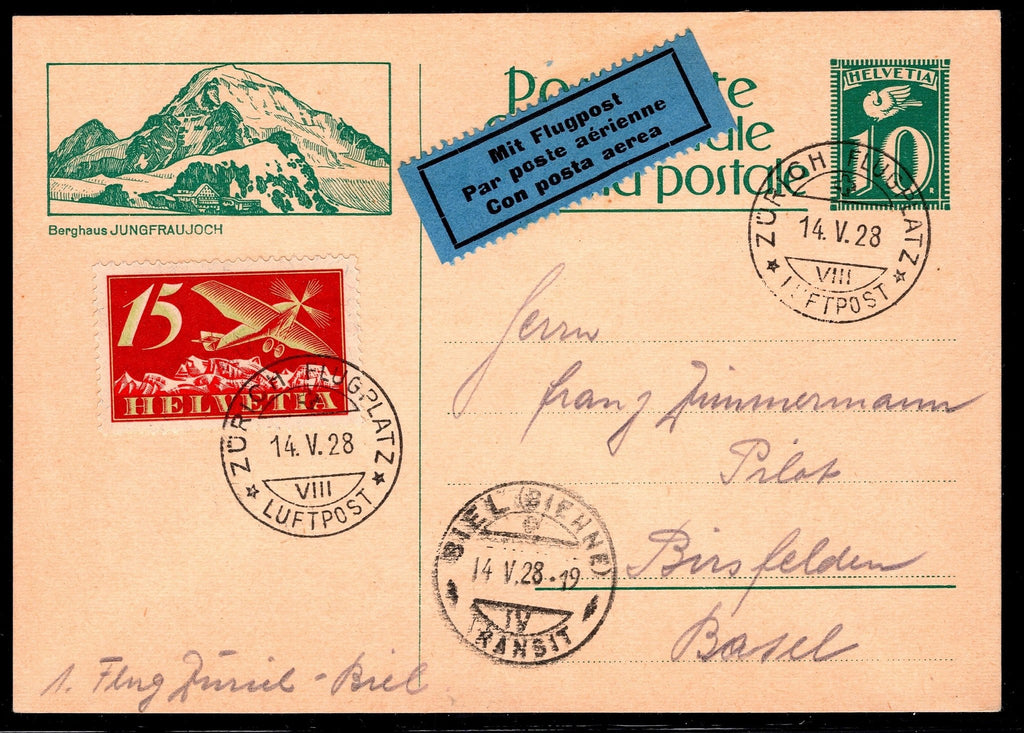 Berghaus JUNGFRAUJOCH
Mit Flugpost
Par poste aérienne
Con posta aerea
postale
HELVETIA
10
ZÜRICH FLUGPLATZ
14.V.28
VIII
LUFTPOST
15
HELVETIA
ZÜRICH FLUGPLATZ
14.V.28
VIII
LUFTPOST
Herrn
Franz Zimmermann
Pilot
Birsfelden
Basel
BIEL (BIENNE)
14 V.28-19
IV
TRANSIT
1. Flug Zürich-Biel